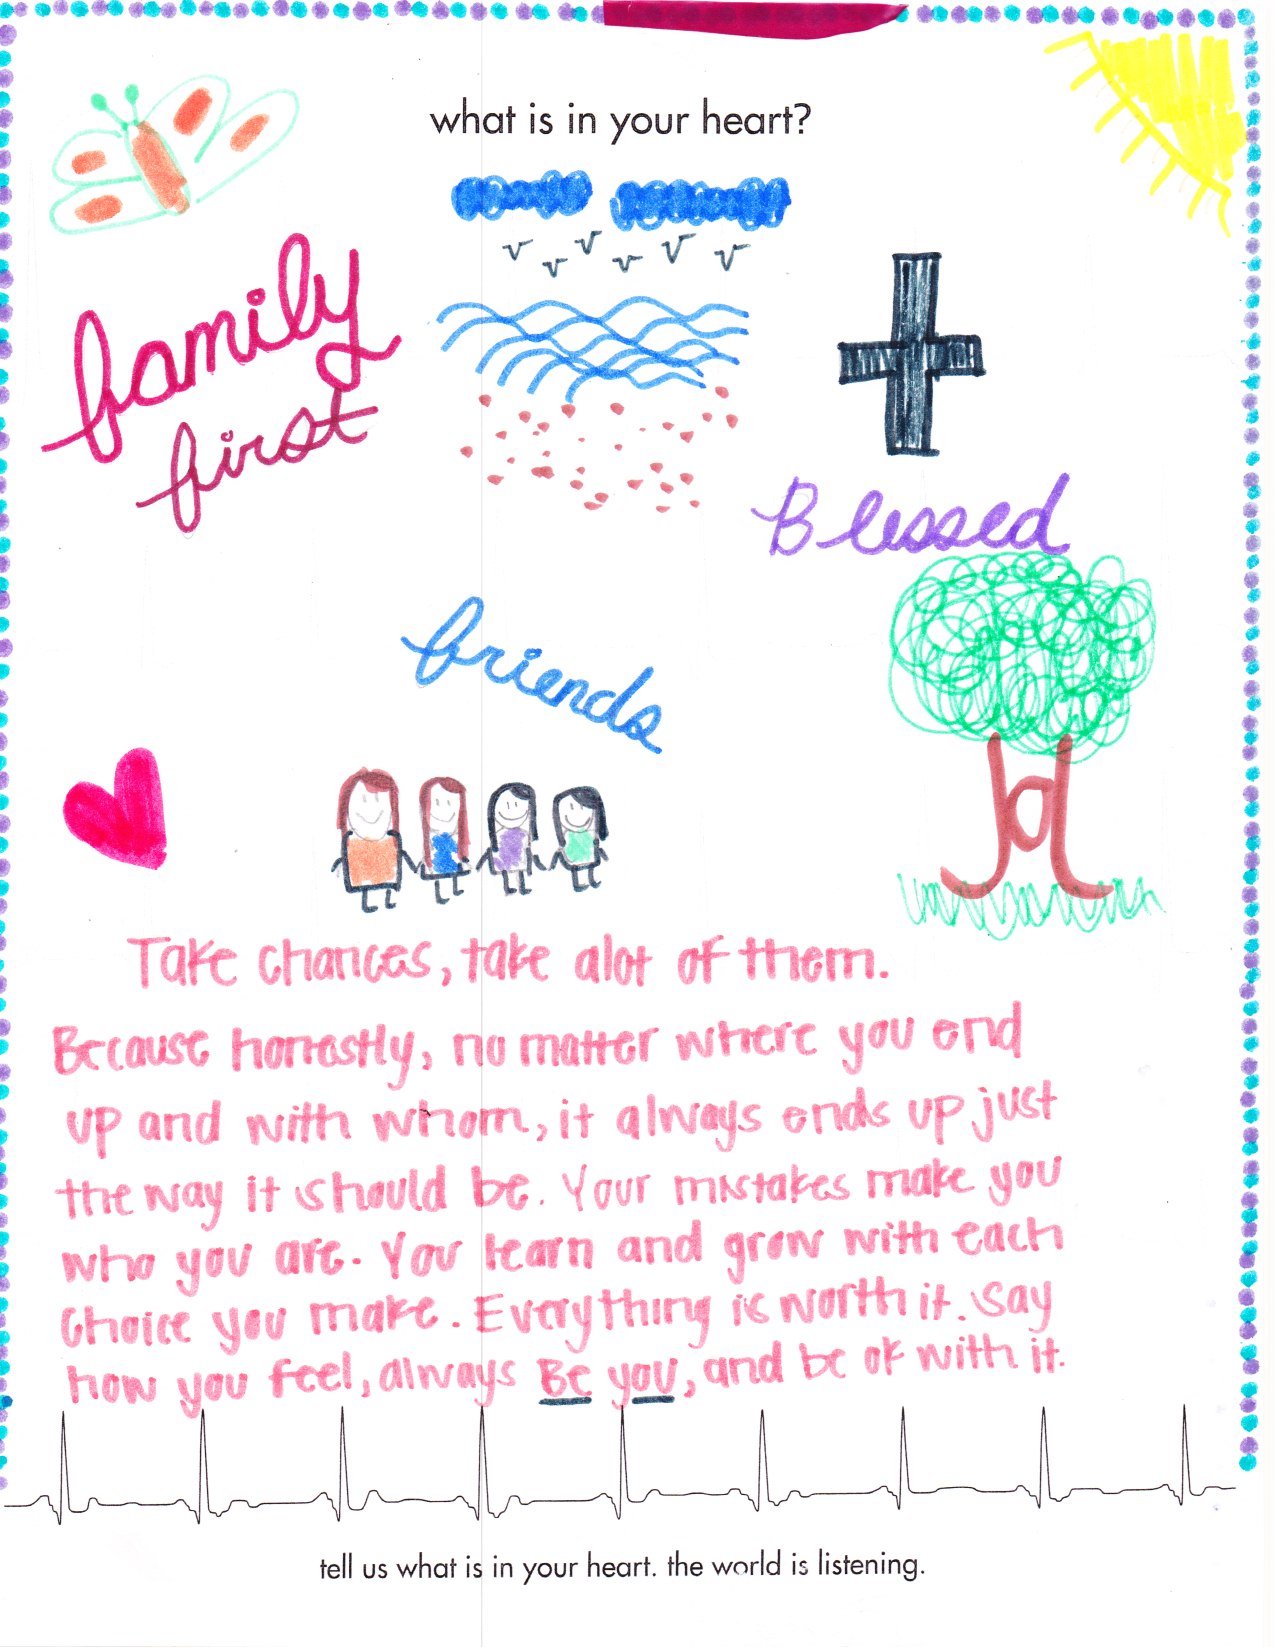 what is in your heart?
family
first
Blessed
friends
Take chances, take alot of them.
Because honestly, no matter where you end
up and with whom, it always ends up just
the way it should be. Your mistakes make you
who you are. You learn and grow with each
choice you make. Everything is worth it. Say
how you feel, always Be you, and be ok with it.
tell us what is in your heart. the world is listening.